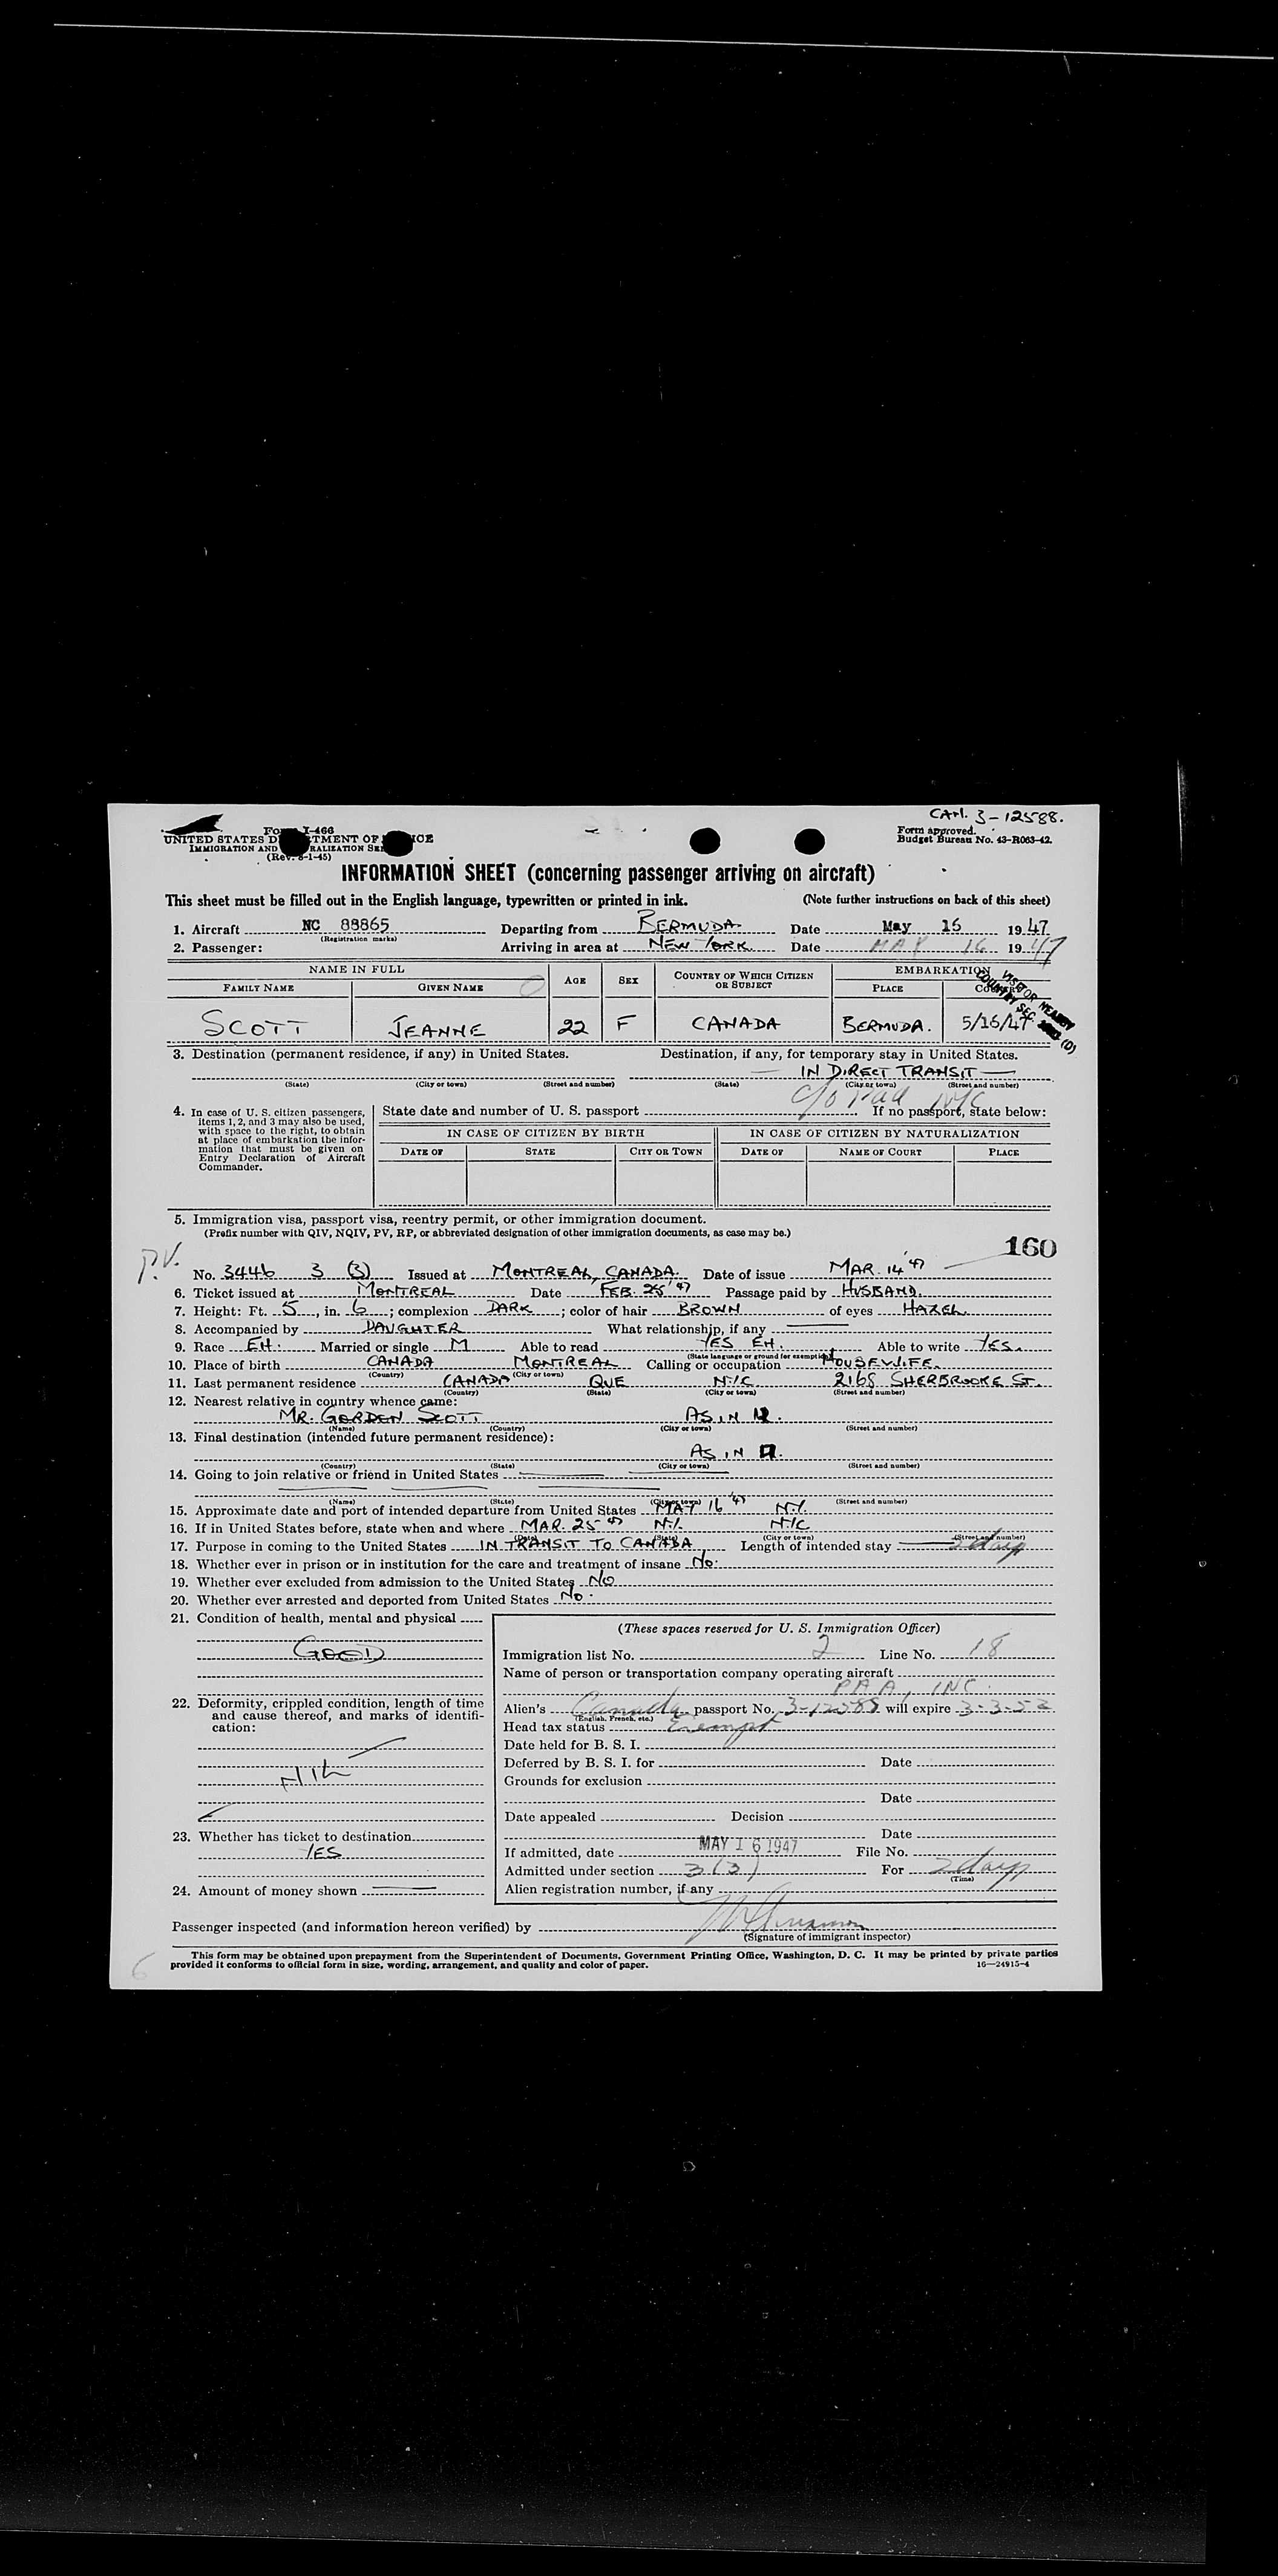 CAN. 3-12588.
Form I-466
UNITED STATES DEPARTMENT OF JUSTICE
IMMIGRATION AND NATURALIZATION SERVICE
(Rev. 8-1-45)
Form approved.
Budget Bureau No. 43-R063-42.
INFORMATION SHEET (concerning passenger arriving on aircraft)
This sheet must be filled out in the English language, typewritten or printed in ink. (Note further instructions on back of this sheet)
1. Aircraft NC 88865 Departing from BERMUDA Date May 16 1947
(Registration marks)
2. Passenger: Arriving in area at NEW YORK Date MAY 16 1947
NAME IN FULL AGE SEX COUNTRY OF WHICH CITIZEN OR SUBJECT EMBARKATION
FAMILY NAME GIVEN NAME PLACE
VISITOR NEARBY
COUNTRY SEC.
SCOTT JEANNE 22 F CANADA BERMUDA. 5/16/47
3. Destination (permanent residence, if any) in United States. Destination, if any, for temporary stay in United States.
IN DIRECT TRANSIT
(State) (City or town) (Street and number) (State) (City or town) (Street and number)
c/o Paa NYC
4. In case of U. S. citizen passengers, items 1, 2, and 3 may also be used, with space to the right, to obtain at place of embarkation the information that must be given on Entry Declaration of Aircraft Commander.
State date and number of U. S. passport If no passport, state below:
IN CASE OF CITIZEN BY BIRTH IN CASE OF CITIZEN BY NATURALIZATION
DATE OF STATE CITY OR TOWN DATE OF NAME OF COURT PLACE
5. Immigration visa, passport visa, reentry permit, or other immigration document.
(Prefix number with QIV, NQIV, PV, RP, or abbreviated designation of other immigration documents, as case may be.)
160
P.V.
No. 3446 3 (3) Issued at MONTREAL, CANADA. Date of issue MAR. 14 '47
6. Ticket issued at MONTREAL Date FEB. 25 '47 Passage paid by HUSBAND.
7. Height: Ft. 5, in. 6; complexion DARK; color of hair BROWN of eyes HAZEL
8. Accompanied by DAUGHTER What relationship, if any
9. Race EH. Married or single M Able to read YES EH. Able to write YES.
(State language or ground for exemption)
10. Place of birth CANADA MONTREAL Calling or occupation HOUSEWIFE.
(Country) (City or town)
11. Last permanent residence CANADA QUE 2168 SHERBROOKE ST.
(Country) (State) (City or town) (Street and number)
12. Nearest relative in country whence came:
MR. GORDEN SCOTT AS IN
(Name) (Country) (City or town) (Street and number)
13. Final destination (intended future permanent residence):
AS IN
(Country) (State) (City or town) (Street and number)
14. Going to join relative or friend in United States
(Name) (State) (City or town) (Street and number)
15. Approximate date and port of intended departure from United States MAY 16 '47 N.Y.
16. If in United States before, state when and where MAR. 25 '47 N.Y. NYC
(Date) (State) (City or town) (Street and number)
17. Purpose in coming to the United States IN TRANSIT TO CANADA Length of intended stay 2 days
18. Whether ever in prison or in institution for the care and treatment of insane NO.
19. Whether ever excluded from admission to the United States NO
20. Whether ever arrested and deported from United States NO.
21. Condition of health, mental and physical
GOOD
22. Deformity, crippled condition, length of time and cause thereof, and marks of identification:
NIL
23. Whether has ticket to destination
YES
24. Amount of money shown
(These spaces reserved for U. S. Immigration Officer)
Immigration list No. 2 Line No. 18
Name of person or transportation company operating aircraft
PAA, INC.
Alien's Canada passport No. 3-12588 will expire 3-3-52
(English, French, etc.)
Head tax status Exempt
Date held for B. S. I.
Deferred by B. S. I. for Date
Grounds for exclusion
Date
Date appealed Decision
Date
If admitted, date MAY 16 1947 File No.
Admitted under section 3(3) For 2 days
(Time)
Alien registration number, if any
Passenger inspected (and information hereon verified) by
(Signature of immigrant inspector)
This form may be obtained upon prepayment from the Superintendent of Documents, Government Printing Office, Washington, D. C. It may be printed by private parties
provided it conforms to official form in size, wording, arrangement, and quality and color of paper. 16—24915-4
6